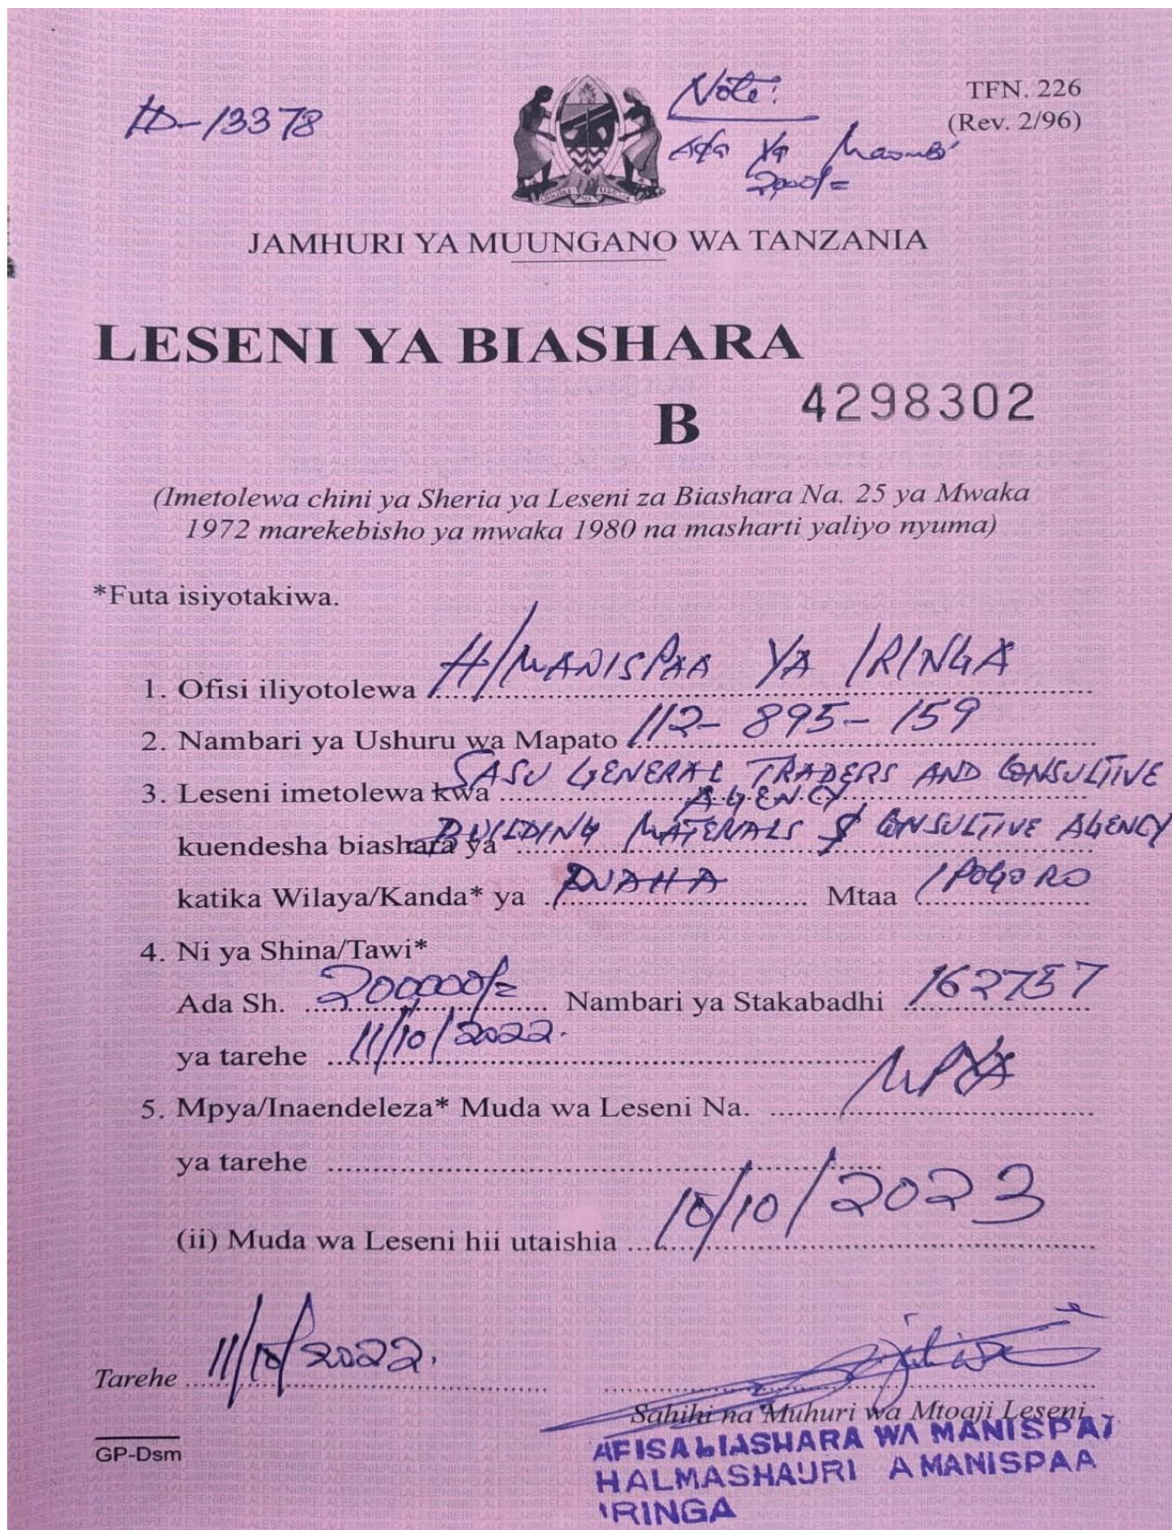 ID-13378
Note:
Ada ya Maombi
2000/=
TFN. 226
(Rev. 2/96)
JAMHURI YA MUUNGANO WA TANZANIA
LESENI YA BIASHARA
B 4298302
(Imetolewa chini ya Sheria ya Leseni za Biashara Na. 25 ya Mwaka
1972 marekebisho ya mwaka 1980 na masharti yaliyo nyuma)
*Futa isiyotakiwa.
1. Ofisi iliyotolewa H/MANISPAA YA IRINGA
2. Nambari ya Ushuru wa Mapato 112-895-159
3. Leseni imetolewa kwa SASU GENERAL TRADERS AND CONSULTIVE
AGENCY
kuendesha biashara ya BUILDING MATERIALS & CONSULTIVE AGENCY
katika Wilaya/Kanda* ya RUAHA Mtaa IPOGORO
4. Ni ya Shina/Tawi*
Ada Sh. 200000/= Nambari ya Stakabadhi 162757
ya tarehe 11/10/2022.
5. Mpya/Inaendeleza* Muda wa Leseni Na. MPYA
ya tarehe
(ii) Muda wa Leseni hii utaishia 10/10/2023
Tarehe 11/10/2022.
Sahihi na Muhuri wa Mtoaji Leseni
GP-Dsm
AFISA BIASHARA WA MANISPAA
HALMASHAURI A MANISPAA
IRINGA